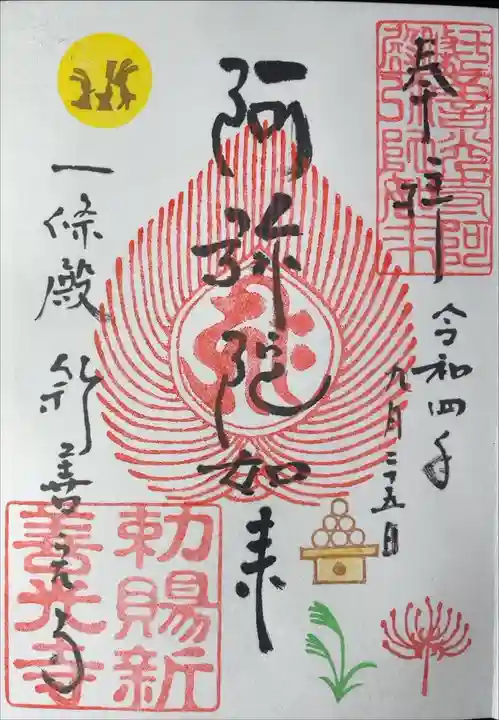 奉拝
令和四年
九月二十五日
阿弥陀如来
一條殿 新善光寺
勅賜新
善光寺